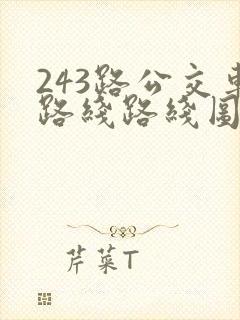 243路公交车
路线路线图
芹菜T